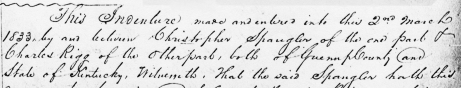 This Indenture made and entered into this 2nd March
1833. by and between Christopher Spangler of the one part &
Charles Rigg of the other part, both of Greenup County and
State of Kentucky, Witnesseth, That the said Spangler hath this